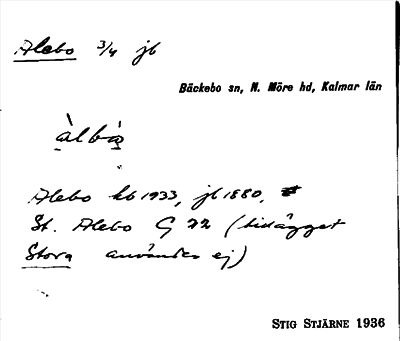 Alebo 3/4 jb
Bäckebo sn, N. Möre hd, Kalmar län
àlbò̱
Alebo kb 1933, jb 1880,
St. Alebo G 22 (tillägget
Stora användes ej)
STIG STJÄRNE 1936